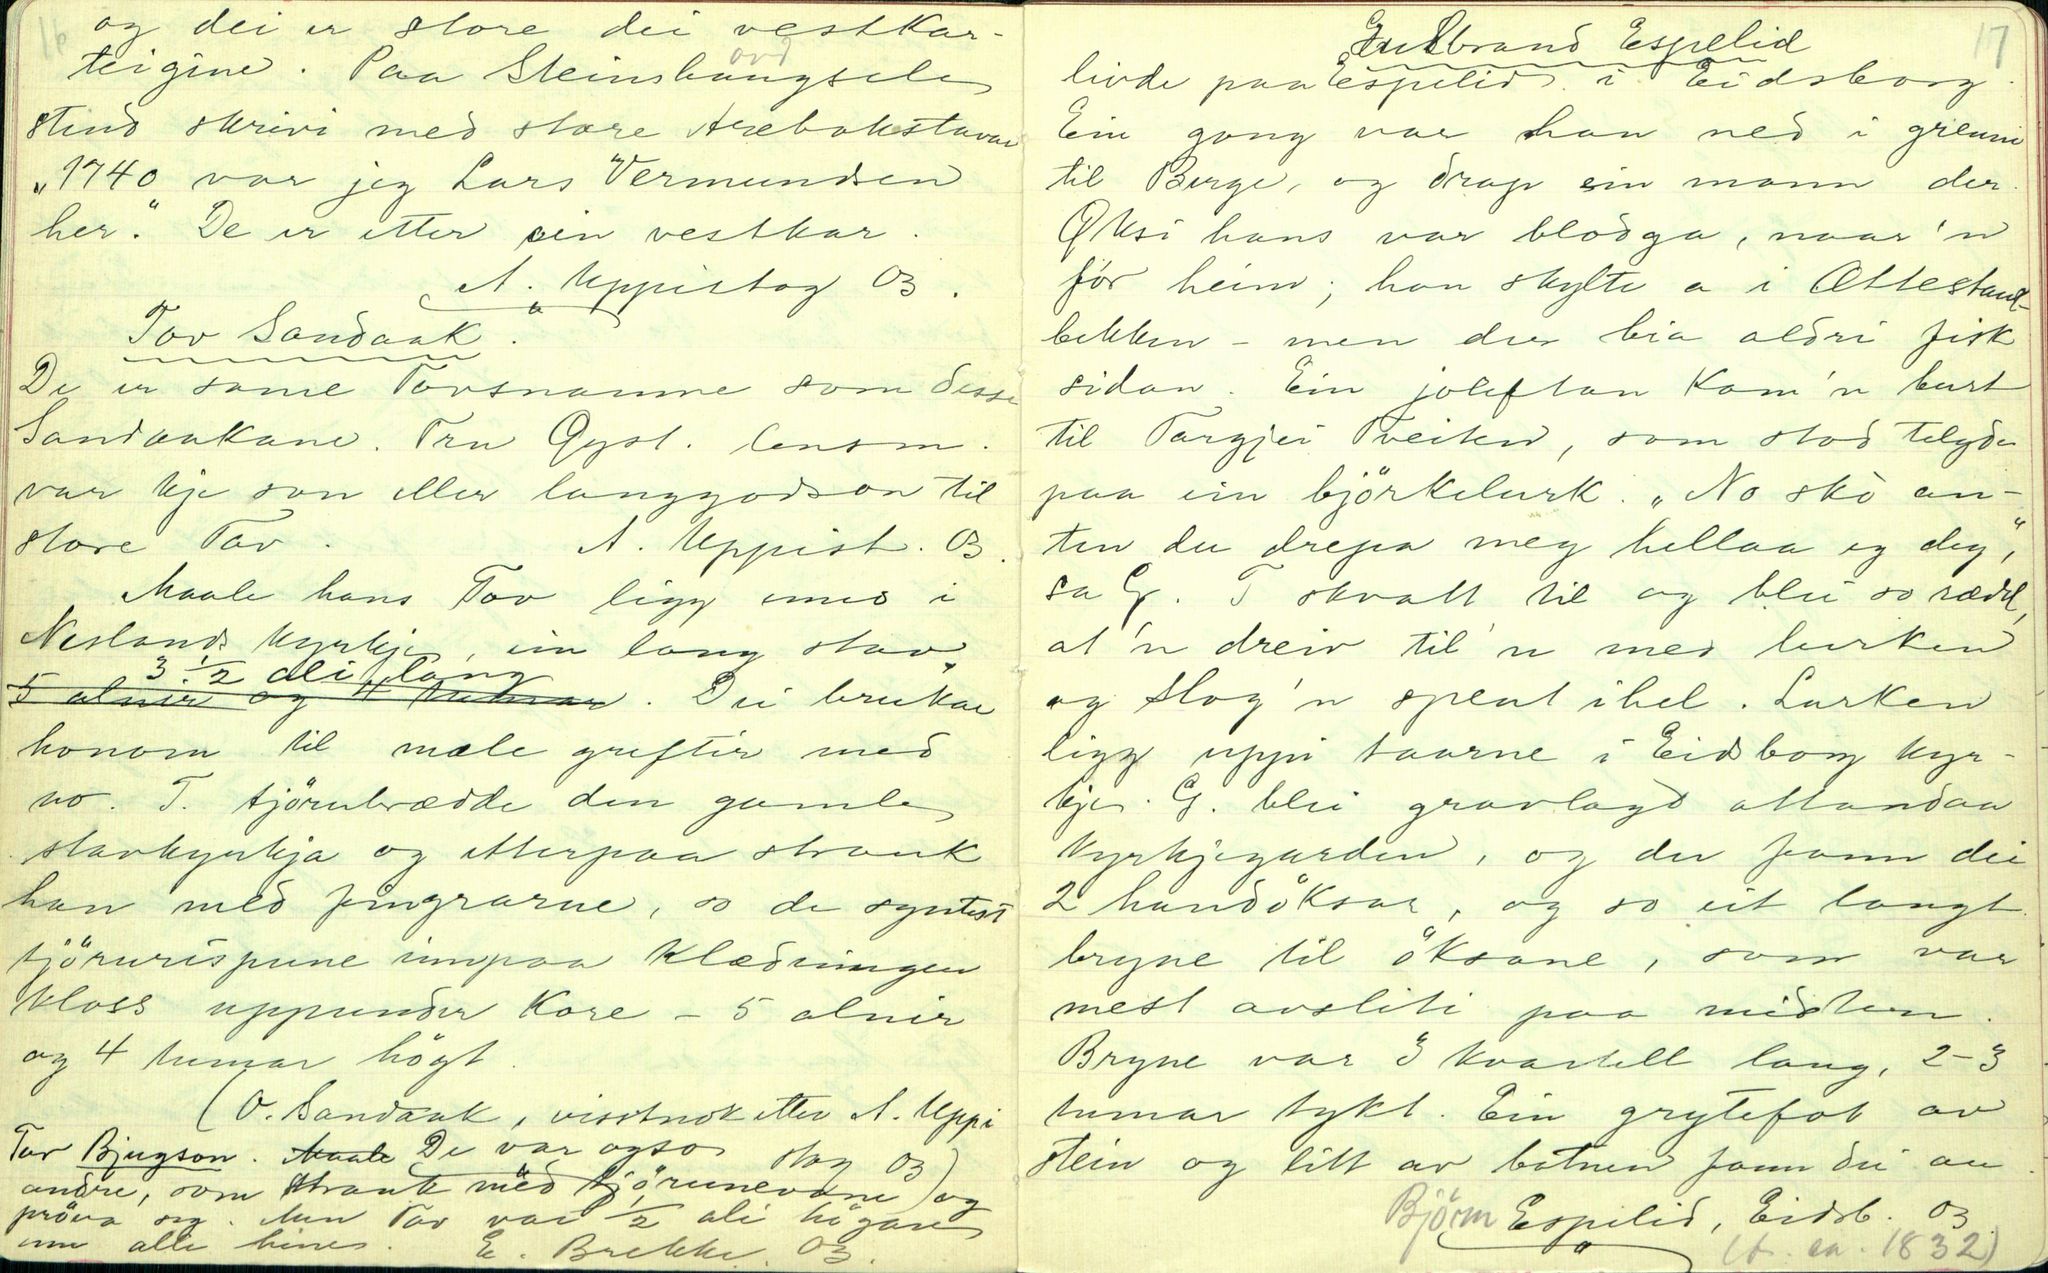 16
og dei er store dei vestkar-
teigine. Paa Steinshaugsele
ovd
stend skrivi med store Aaebokstavar
"1740 var jeg Lars Vermundsen
her." De er etter ein vestkar.
A. Uppistog 03.
Tov Sandaak.
De er same Tovsnamne som desse
Sandaakane. Tru Qyst. lensm.
var kje son eller langgodson til
store Tov. A. Uppist. 03.
Maale hans Tov ligg inne i
Neslands kyrkje, ein lang stav,
3 1/2 ali lang
5 alnir og 4 tumar. Dei brukar
honom til mæle greftir med
no. T. tjörubrædde den gamle
stavkyrkja og etterpaa strauk
han med fingrarne, so de syntest
tjörurispune innpaa klædningen
kloss uppunder Kore - 5 alnir
og 4 tumar högt.
(O. Sandaak, visstnok etter A. Uppi
stog 03)
Tov Bjugson. Maale De var ogso
andre, som strauk med tjörunevane og
pröva seg. Men Tov var 1/2 ali högare
enn alle hine. E. Brekke. 03.
17
Gudbrand Espelid
livde paa Espelid i Eidsborg.
Ein gong var han ned i grenni
til Berge, og drap ein mann der.
Øksi hans var blodga, naar'n
for heim; han skylte a i Ættestaul-
bekken - men der bia aldri fisk
sidan. Ein joleftan Kom'n burt
til Targjei Tveiten, som stod telgde
paa ein björkelurk. "No sko an-
ten du drepa meg hellaa eg deg",
sa G. T skvatt til og blei so rædd,
at'n dreiv til'n med lurken
og slog'n speut ihel. Lurken
ligg uppi taarne i Eidsborg kyr-
kje. G. blei gravlagd attandaa
kyrkjegarden, og der fann dei
2 handöksar, og so eit langt
bryne til öksane, som var
mest avsliti paa midten.
Bryne var 3 kvartell lang, 2-3
tumar tykt. Ein grytefot av
stein og litt av botnen fann dei au.
Björn Espelid, Eidsb. 03
(f. ca. 1832)